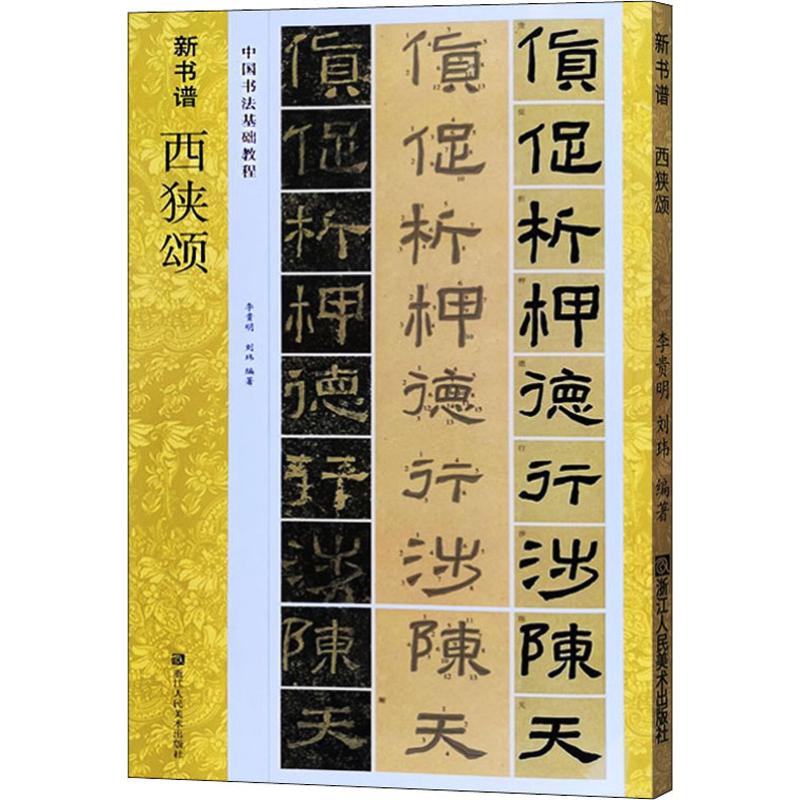 新书谱
西狭颂
浙江人民美术出版社
中国书法基础教程
李贵明 刘玮 编著
促 促 促
析 析 析
柙 柙 柙
德 德 德
行 行 行
涉 涉 涉
陳 陳 陳
天 天 天
新书谱
西狭颂
李贵明 刘玮 编著
浙江人民美术出版社